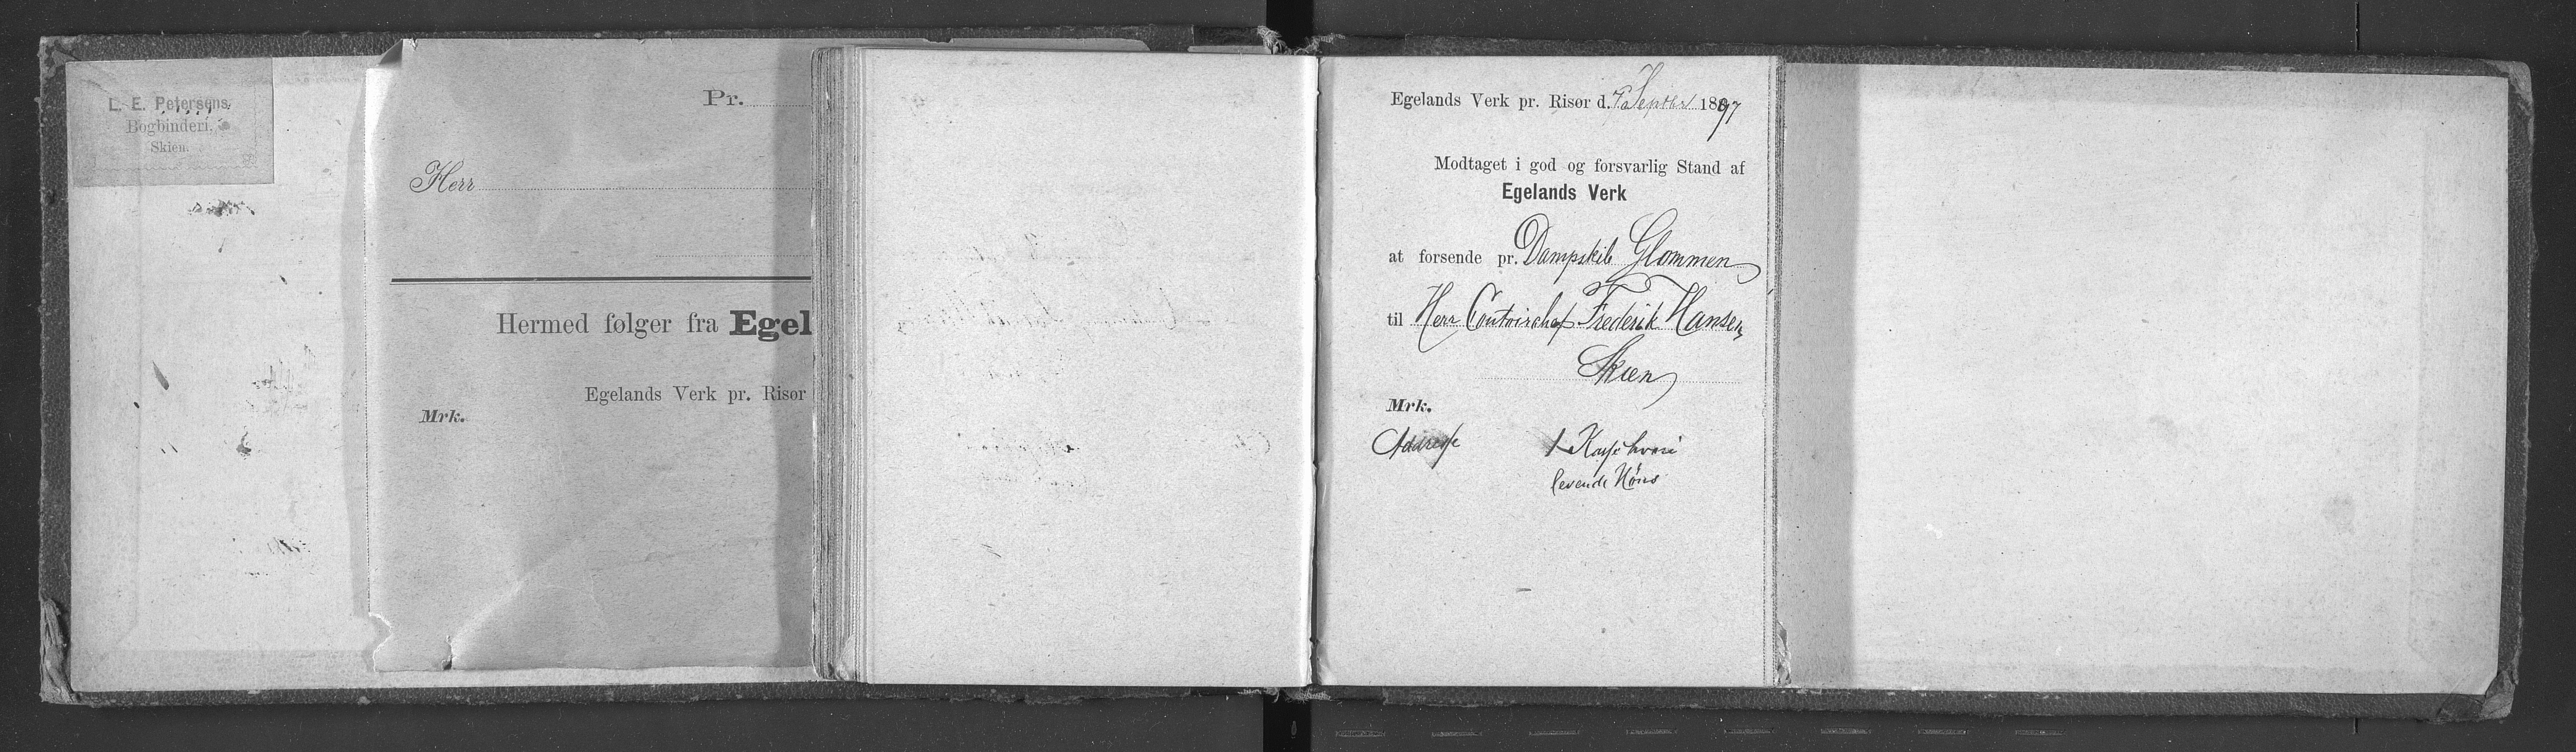 L. E. Petersens
Bogbinderi.
Skien.
Pr.
Herr
Hermed følger fra Egel
Egelands Verk pr. Risør
Mrk.
Egelands Verk pr. Risør d. 7 Septbr 1897
Modtaget i god og forsvarlig Stand af
Egelands Verk
at forsende pr. Dampskib Glommen
til Herr Contoirchef Frederik Hansen
Skien
Mrk.
Addresse 1 Kasse hvori
levende Høns